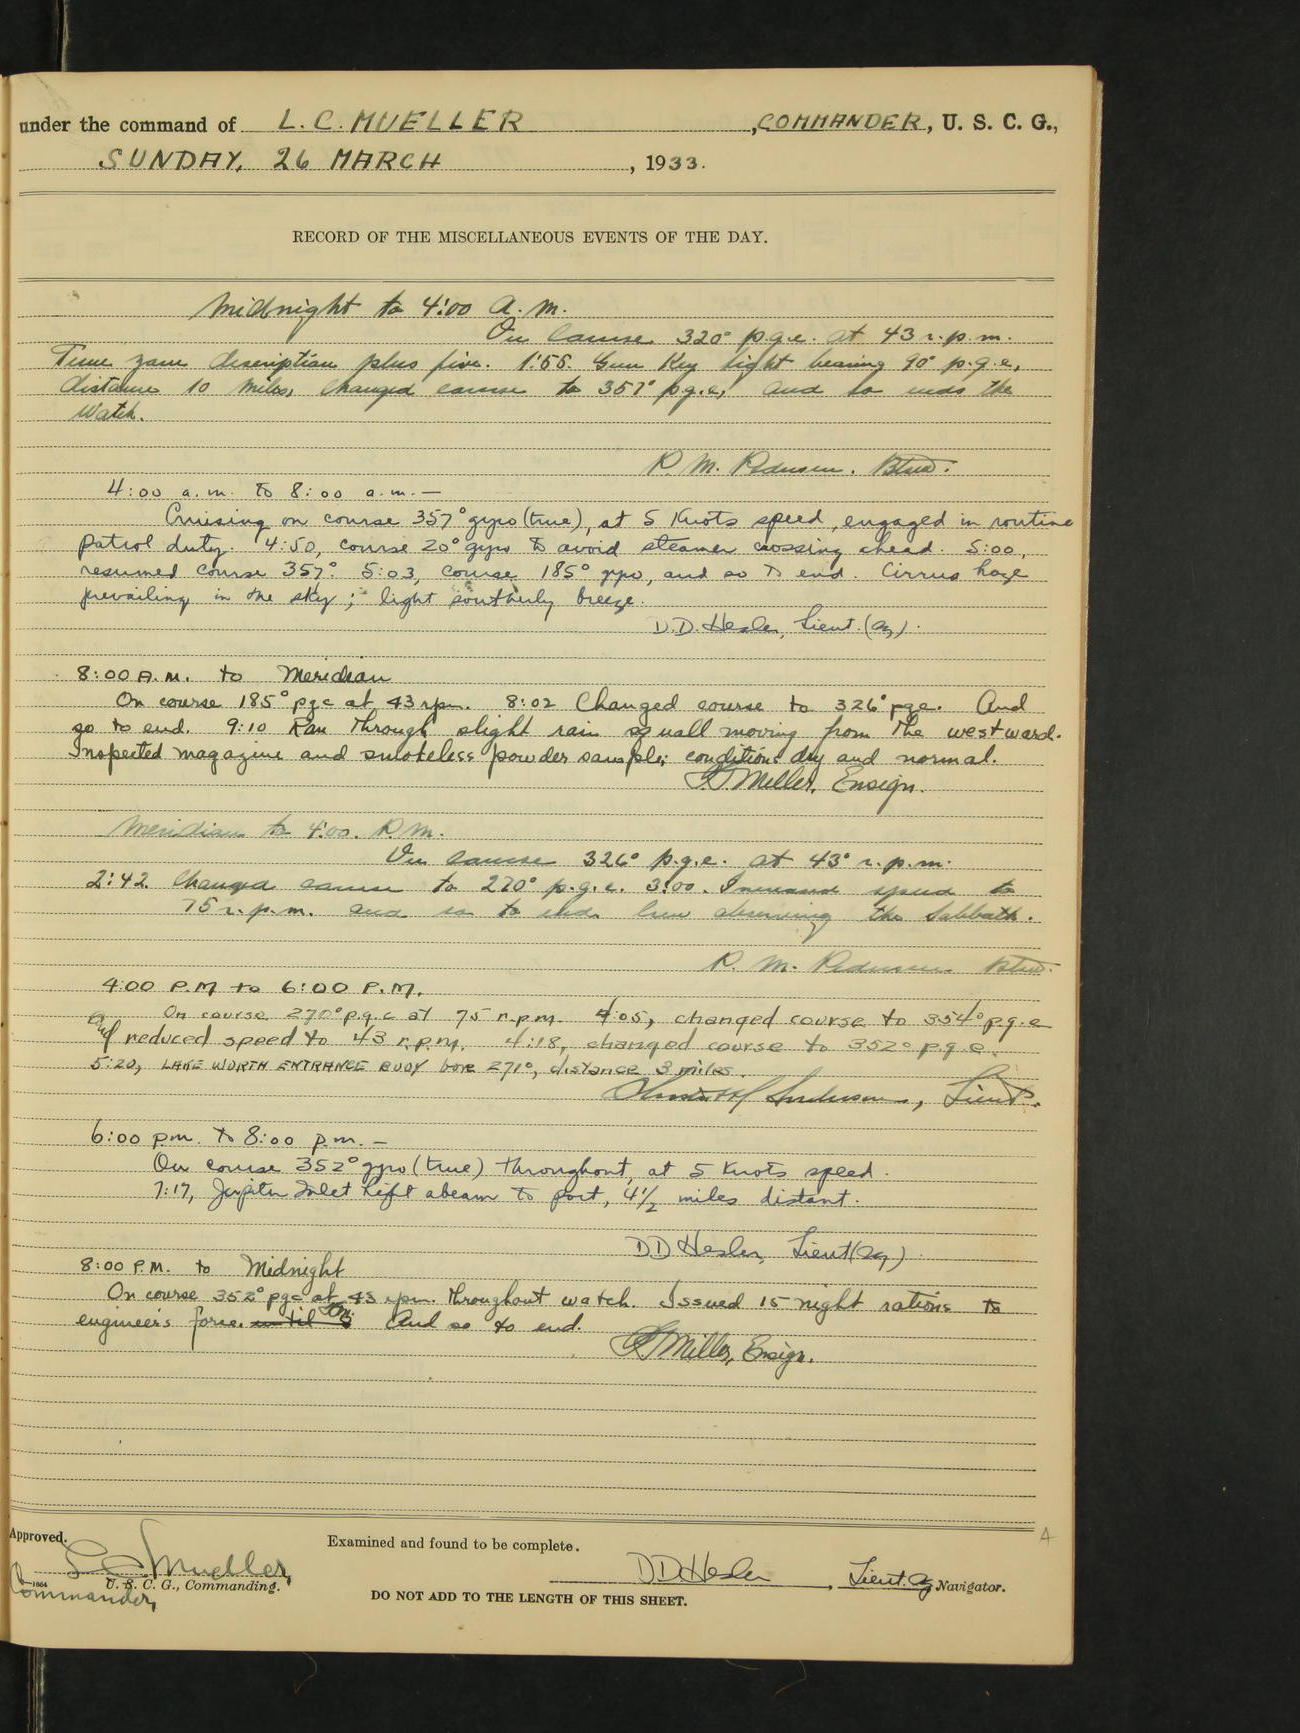 under the command of L. C. MUELLER, COMMANDER, U. S. C. G.,
SUNDAY, 26 MARCH, 1933.
RECORD OF THE MISCELLANEOUS EVENTS OF THE DAY.
Midnight to 4:00 A. M.
On course 320° p.g.c. at 43 r.p.m.
Time zone description plus five. 1:56 Gun Key light bearing 90° p.g.c,
distance 10 miles, changed course to 357° p.g.c, and so ends the
watch.
R. M. Pedersen. Btsn.
4:00 a.m. to 8:00 a.m.—
Cruising on course 357° gyro (true), at 5 Knots speed, engaged in routine
patrol duty. 4:50, course 20° gyro to avoid steamer crossing ahead. 5:00,
resumed course 357°. 5:03, course 185° gyro, and so to end. Cirrus haze
prevailing in the sky; light southerly breeze.
D.D. Hesler, Lieut. (Ag).
8:00 A.M. to Meridian
On course 185° pgc at 43 rpm. 8:02 Changed course to 326° pgc. And
so to end. 9:10 Ran through slight rain squall moving from the westward.
Inspected magazine and smokeless powder samples; conditions dry and normal.
Miller, Ensign.
Meridian to 4:00. P.M.
On course 326° p.g.c. at 43° r.p.m.
2:42 Changed course to 270° p.g.c. 3:00. Increased speed to
75 r.p.m. and so to end. Crew observing the Sabbath.
R. M. Pedersen Btsn.
4:00 P.M to 6:00 P.M.
On course 270° p.g.c at 75 r.p.m. 4:05, changed course to 354° p.g.c
and reduced speed to 43 r.p.m. 4:18, changed course to 352° p.g.c.
5:20, LAKE WORTH ENTRANCE BUOY bore 271°, distance 3 miles.
Anderson, Lieut.
6:00 p.m. to 8:00 p.m.—
On course 352° gyro (true) throughout, at 5 Knots speed.
7:17, Jupiter Inlet Light abeam to port, 4½ miles distant.
DD Hesler, Lieut (Ag).
8:00 P.M. to Midnight
On course 352° pgc at 43 rpm. throughout watch. Issued 15 night rations to
engineers force. And so to end.
Miller, Ensign.
Approved.
L C Mueller,
U. S. C. G., Commanding.
Commander,
Examined and found to be complete.
DD Hesler, Lieut. Ag Navigator.
DO NOT ADD TO THE LENGTH OF THIS SHEET.